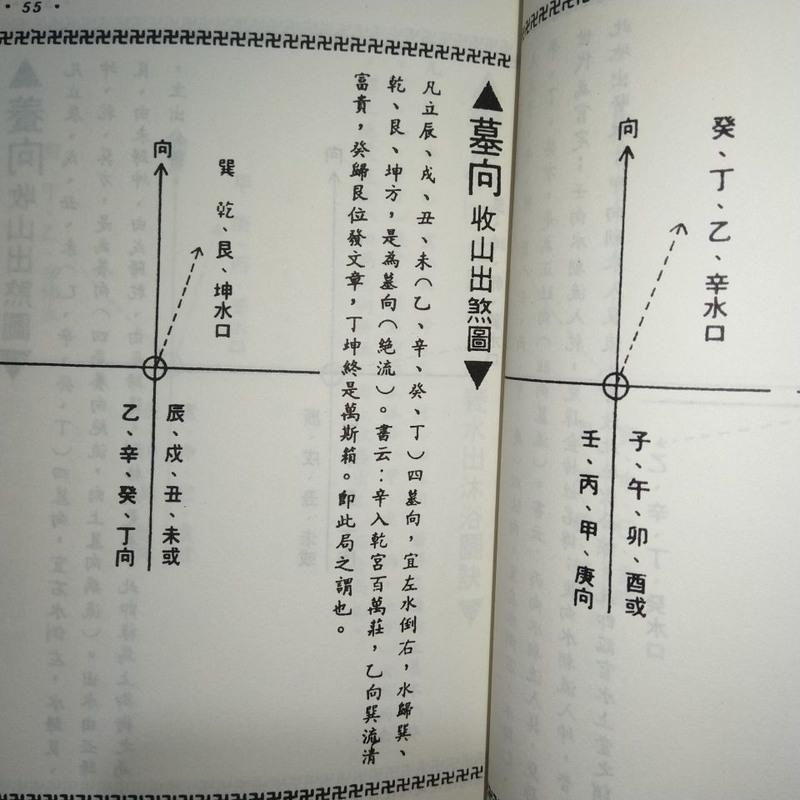 癸、丁、乙、辛水口
向
子、午、卯、酉或
壬、丙、甲、庚向
• 55 •
▲墓向收山出煞圖▼
凡立辰、戍、丑、未（乙、辛、癸、丁）四墓向，宜左水倒右，水歸巽、
乾、艮、坤方，是為墓向（絕流）。書云：辛入乾宮百萬莊，乙向巽流清
富貴，癸歸艮位發文章，丁坤終是萬斯箱。即此局之謂也。
巽 乾、艮、坤水口
向
辰、戍、丑、未或
乙、辛、癸、丁向